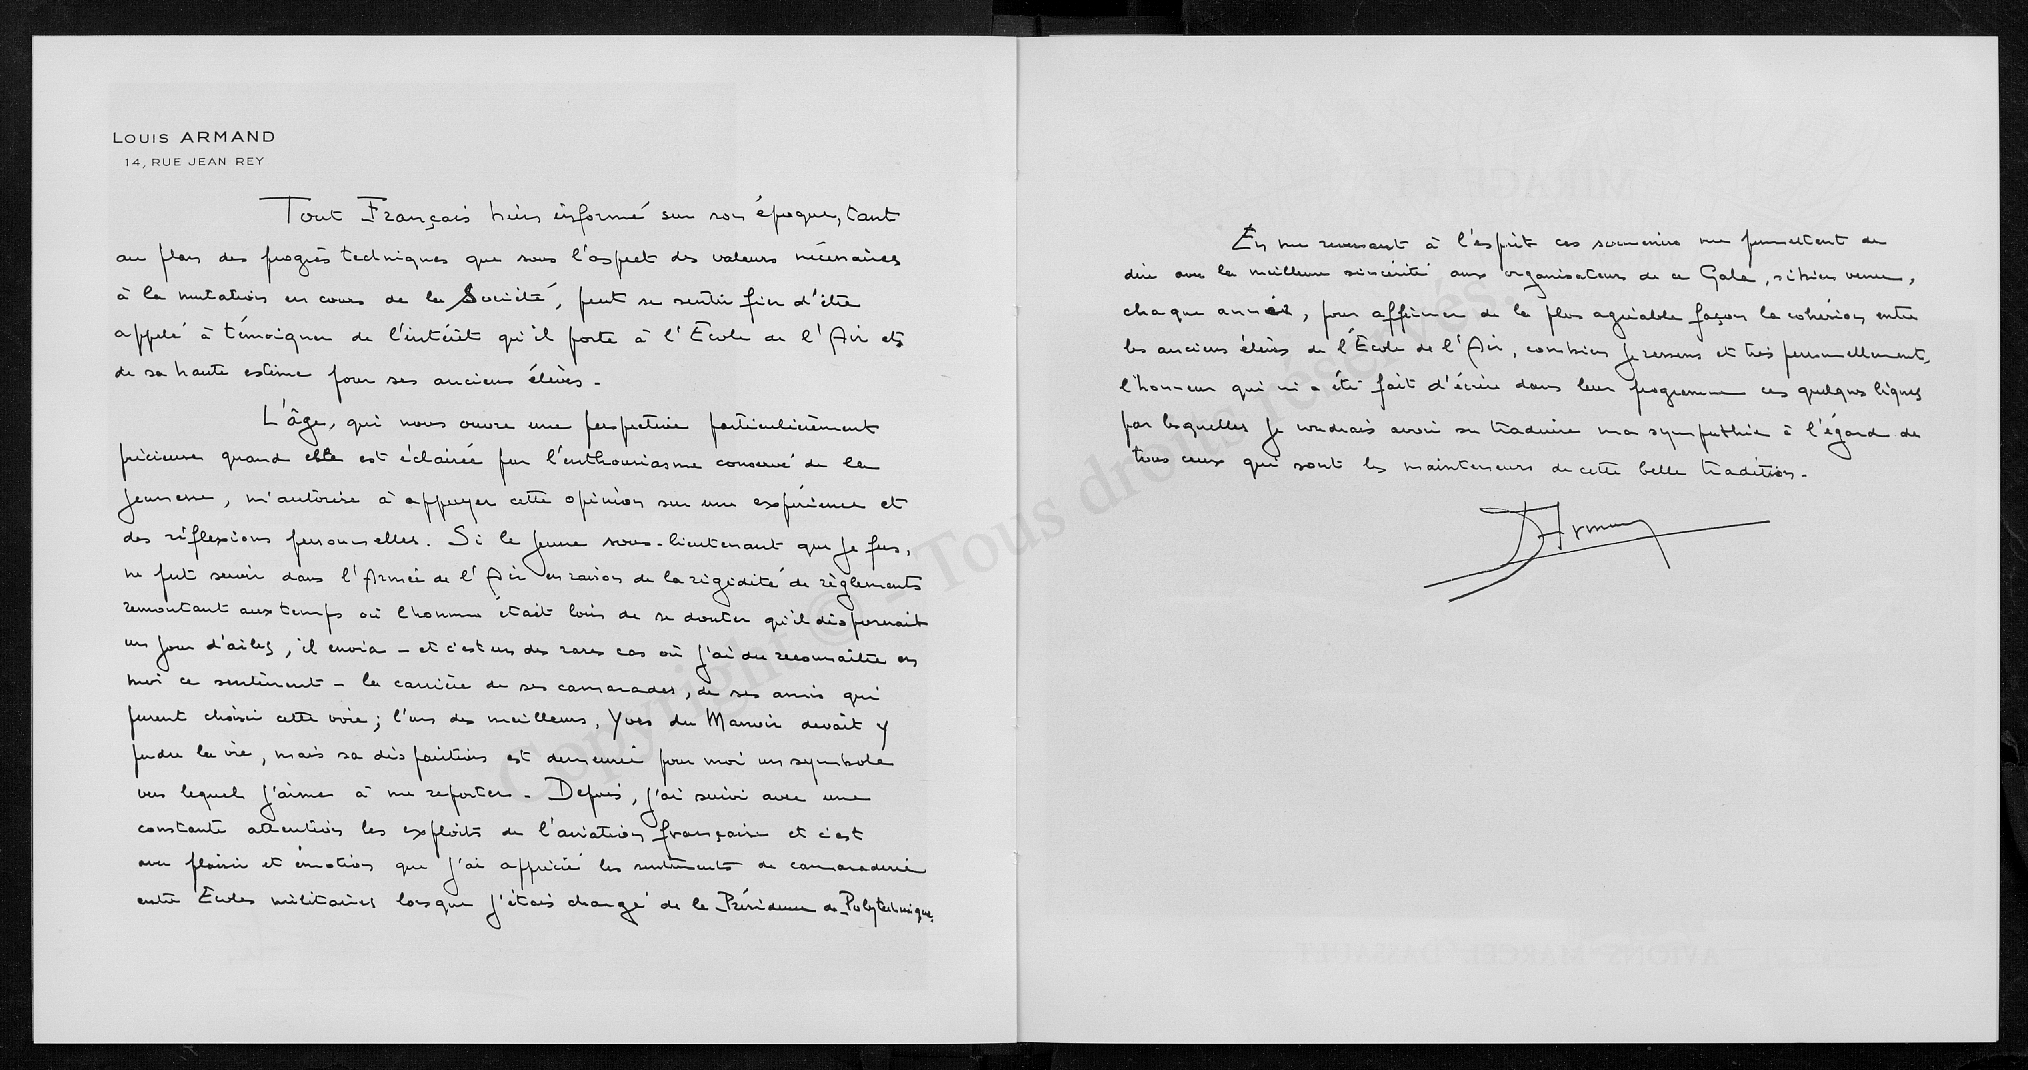 LOUIS ARMAND
14, RUE JEAN REY
Tout Français bien informé sur son époque, tant
au plan des progrès techniques que sous l'aspect des valeurs nécessaires
à la mutation en cours de la Société, peut se sentir fier d'être
appelé à témoigner de l'intérêt qu'il porte à l'Ecole de l'Air et
de sa haute estime pour ses anciens élèves.
L'âge, qui nous ouvre une perspective particulièrement
précieuse quand elle est éclairée par l'enthousiasme conservé de la
jeunesse, m'autorise à appuyer cette opinion sur une expérience et
des réflexions personnelles. Si le jeune sous-lieutenant que je fus,
ne put servir dans l'Armée de l'Air en raison de la rigidité de règlements
remontant aux temps où l'homme était loin de se douter qu'il disposerait
un jour d'ailes, il envia - et c'est un des rares cas où j'ai du reconnaître en
moi ce sentiment - la carrière de ses camarades, de ses amis qui
purent choisir cette voie; l'un des meilleurs, Yves du Manoir devait y
perdre la vie, mais sa disparition est demeurée pour moi un symbole
vers lequel j'aime à me reporter. Depuis, j'ai suivi avec une
constante attention les exploits de l'aviation française et c'est
avec plaisir et émotion que j'ai apprécié les sentiments de camaraderie
entre Ecoles militaires lorsque j'étais chargé de la Présidence de Polytechnique.
En me revenant à l'esprit ces souvenirs me permettent de
dire avec la meilleure sincérité aux organisateurs de ce Gala, si bien venu,
chaque année, pour affirmer de la plus agréable façon la cohésion entre
les anciens élèves de l'École de l'Air, combien je ressens et très personnellement,
l'honneur qui m'a été fait d'écrire dans leur programme ces quelques lignes
par lesquelles je voudrais avoir su traduire ma sympathie à l'égard de
tous ceux qui sont les mainteneurs de cette belle tradition.
L Armand
Copyright © - Tous droits réservés.
MIRAGE
AVIONS MARCEL DASSAULT